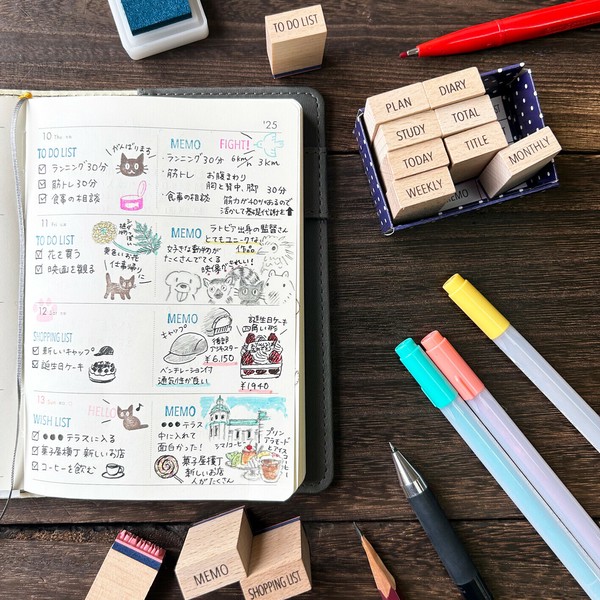 TO DO LIST
PLAN
DIARY
STUDY
TOTAL
TODAY
TITLE
WEEKLY
MEMO
MONTHLY
'25
10 Thu
TO DO LIST
がんばります
ランニング30分
筋トレ30分
食事の相談
MEMO
FIGHT!
・ランニング30分 6km/h 3km
・筋トレ お腹まわり
胸と背中、脚 30分
・食事の相談 筋力が40%あるので
活かして基礎代謝を
11 Fri
TO DO LIST
花を買う
映画を観る
黄色いお花
仕事帰りに
MEMO
ラトビア出身の監督さん
とてもユニークな作品
好きな動物が
たくさんでてくる
映像がきれい!
12 Sat
SHOPPING LIST
新しいキャップ
誕生日ケーキ
MEMO
キャップ
後部
アジャスター
¥6,150
ベンチレーション付
通気性が良い
誕生日ケーキ
四角い形
¥1940
13 Sun
WISH LIST
HELLO
●●●テラスに入る
菓子屋横丁 新しいお店
コーヒーを飲む
MEMO
●●●テラス
中に入れて
面白かった!
シマノコーヒー
プリン
アラモード
とアイス
コーヒー
菓子屋横丁
新しいお店
人がたくさん
MEMO
SHOPPING LIST